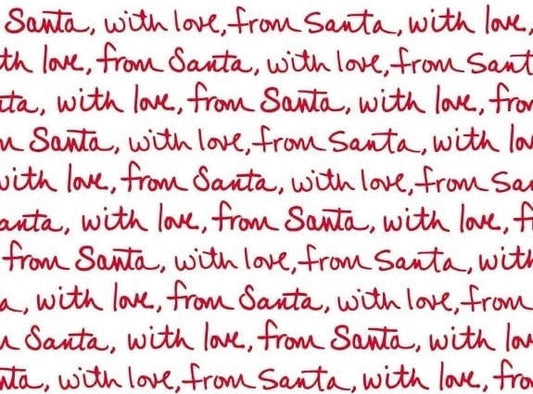 Santa, with love, from Santa, with love,
th love, from Santa, with love, from Sant
ta, with love, from Santa, with love, fro
m Santa, with love, from Santa, with lov
with love, from Santa, with love, from Sa
anta, with love, from Santa, with love, f
from Santa, with love, from Santa, with
a, with love, from Santa, with love, from
m Santa, with love, from Santa, with lov
nta, with love, from Santa, with love, fro